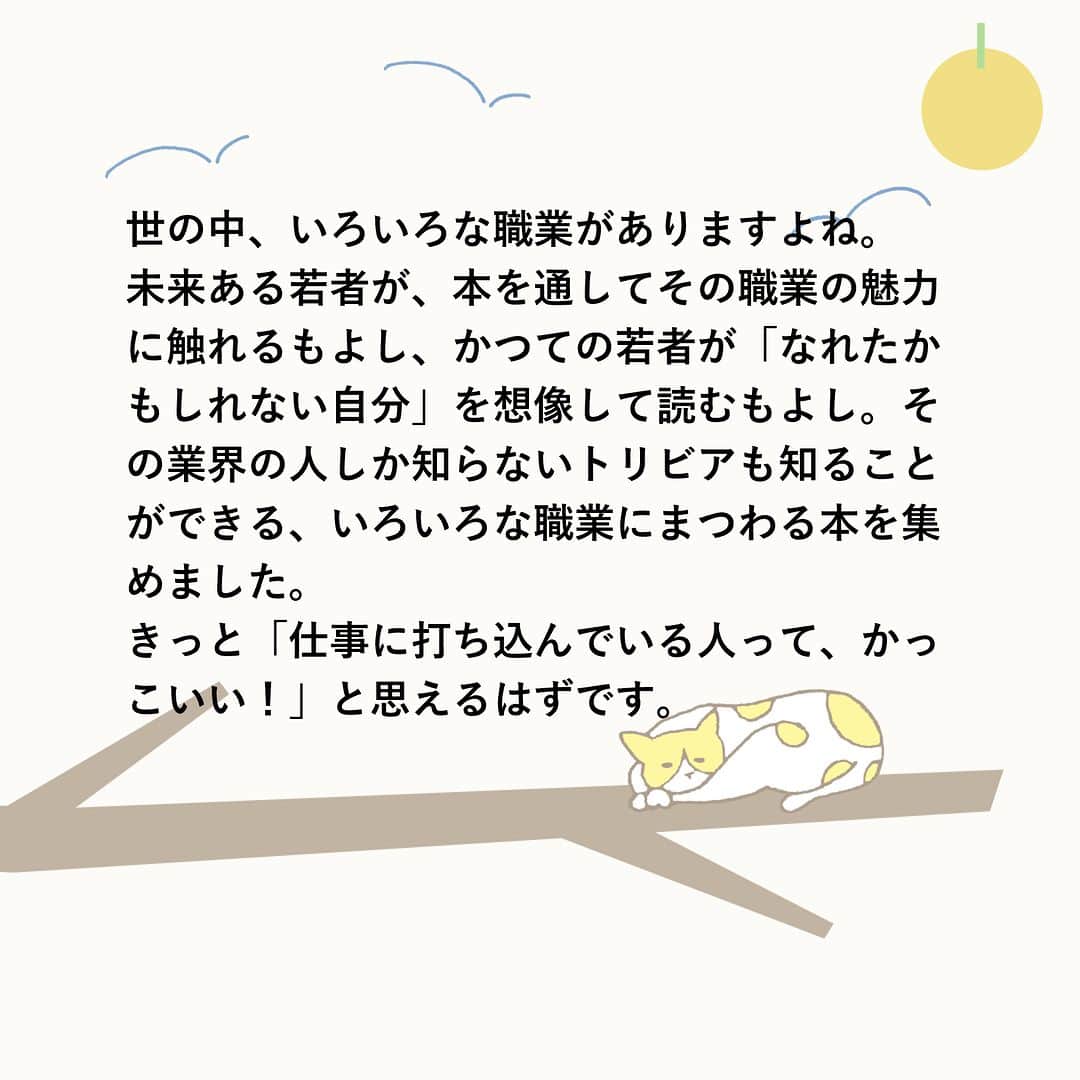 世の中、いろいろな職業がありますよね。
未来ある若者が、本を通してその職業の魅力
に触れるもよし、かつての若者が「なれたか
もしれない自分」を想像して読むもよし。そ
の業界の人しか知らないトリビアも知ること
ができる、いろいろな職業にまつわる本を集
めました。
きっと「仕事に打ち込んでいる人って、かっ
こいい！」と思えるはずです。